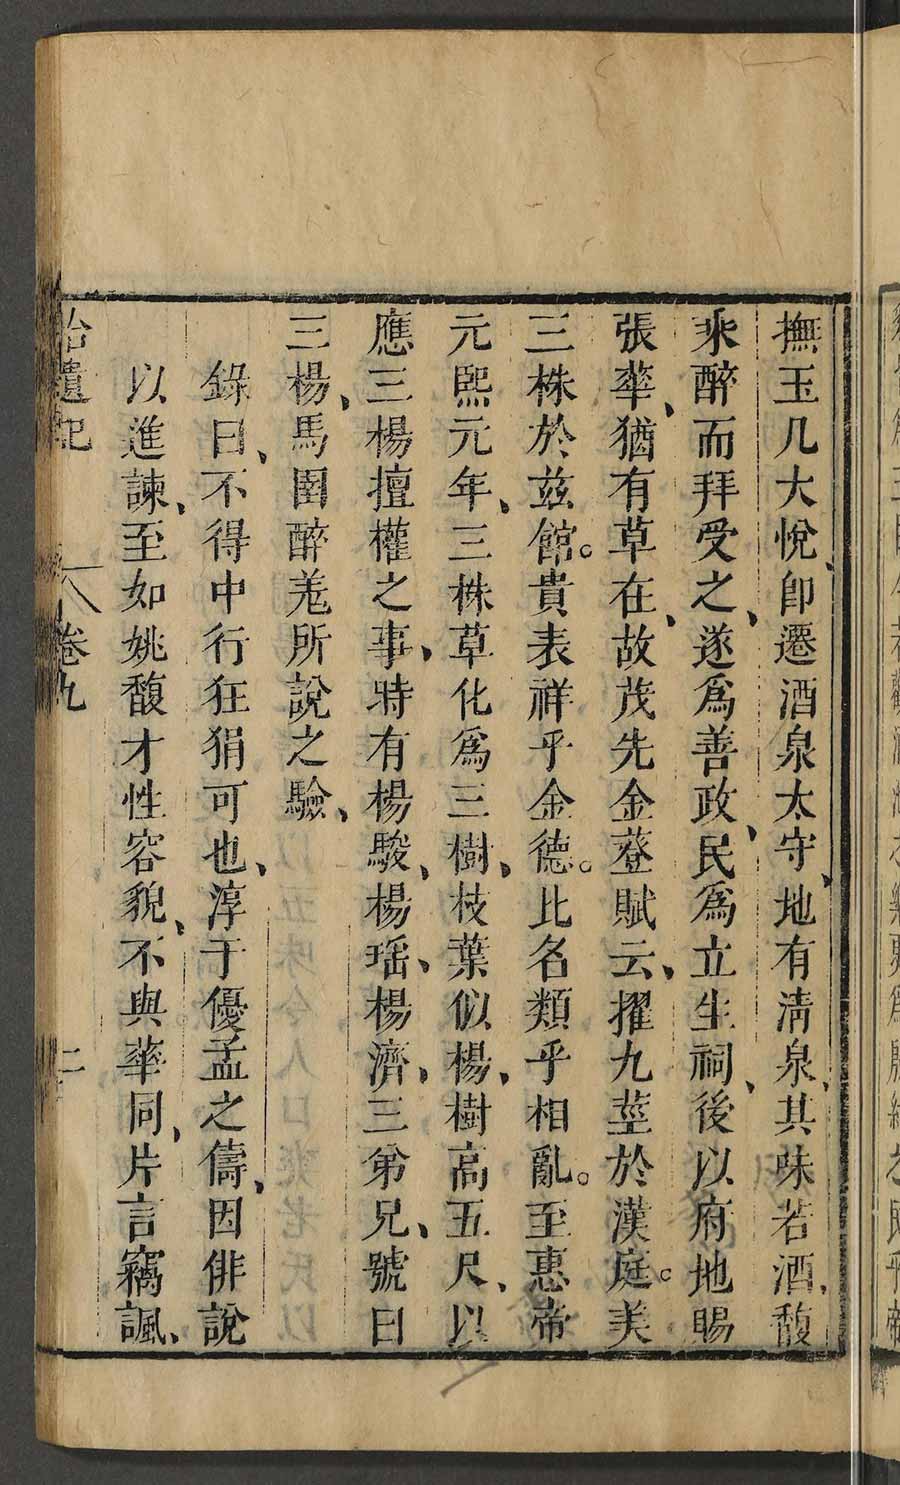 撫玉几大悅、卽遷酒泉太守、地有淸泉、其味若酒、馥
乘醉而拜受之、遂爲善政、民爲立生祠、後以府地賜
張華、猶有草在、故茂先金䔲賦云、擢九莖於漢庭。美
三株於兹館。貴表祥乎金德。比名類乎相亂。至惠帝
元熙元年、三株草化爲三樹、枝葉似楊、樹高五尺、以
應三楊擅權之事、時有楊駿、楊瑶、楊濟、三弟兄、號曰
三楊、馬圉醉羌所說之驗、
錄曰、不得中行狂狷可也、淳于優孟之儔、因俳說
以進諫、至如姚馥才性容貌、不與華同、片言竊諷、
拾遺記
卷九
二